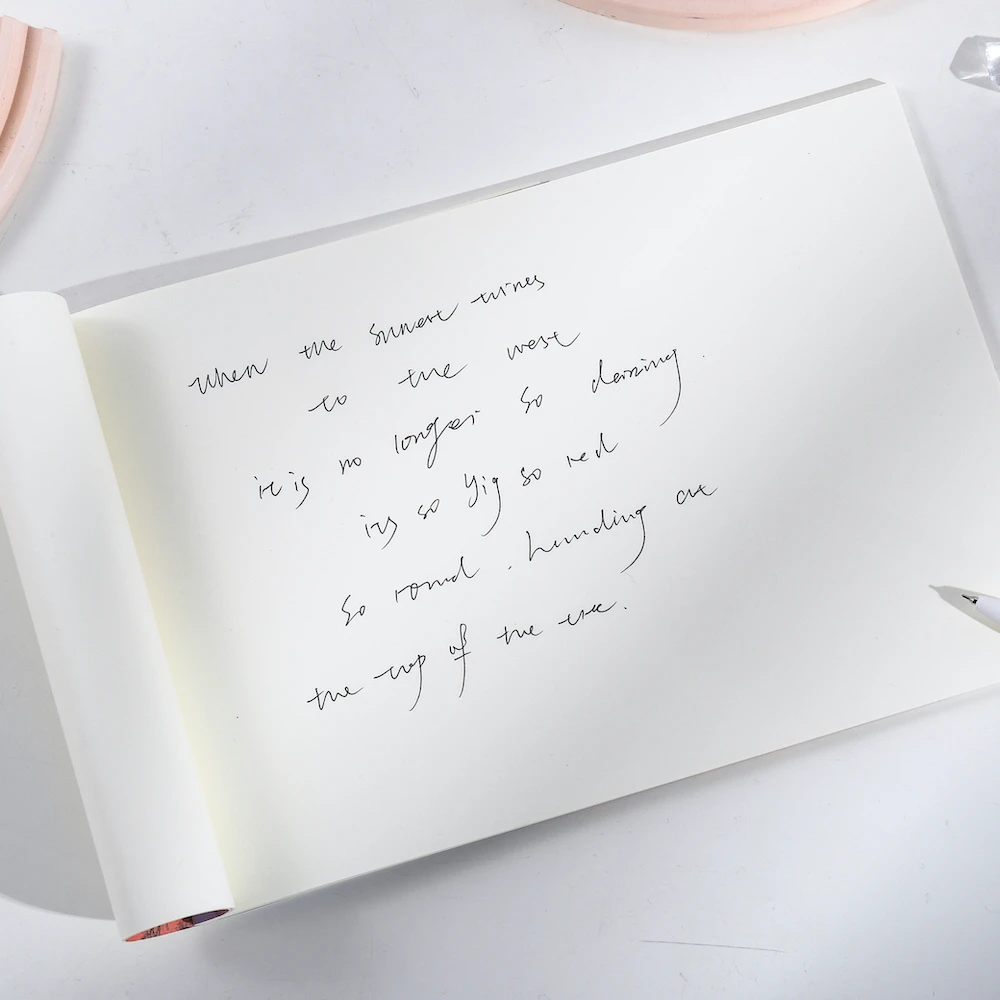 when the sunset turnes
to the west
it is no longer so dazzing.
it's so big so red
so round. handing at
the top of the tree.